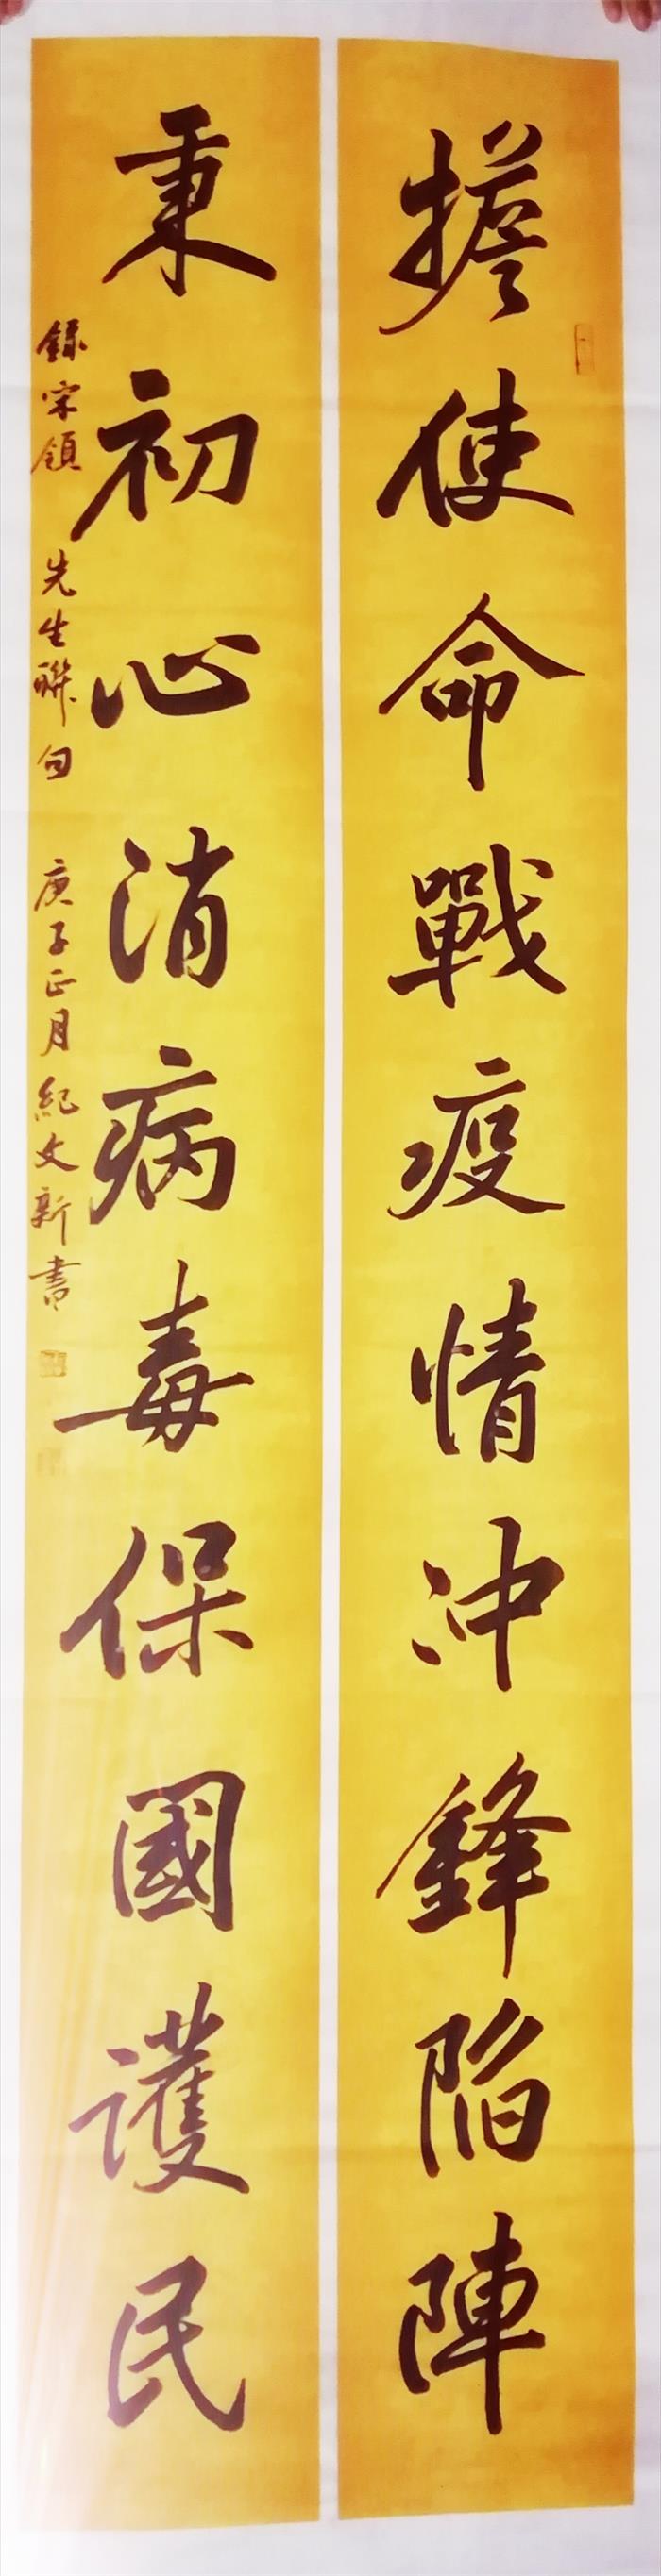 擔使命戰疫情冲鋒陷陣
秉初心消病毒保國護民
錄宋領 先生聯句 庚子正月紀文新書